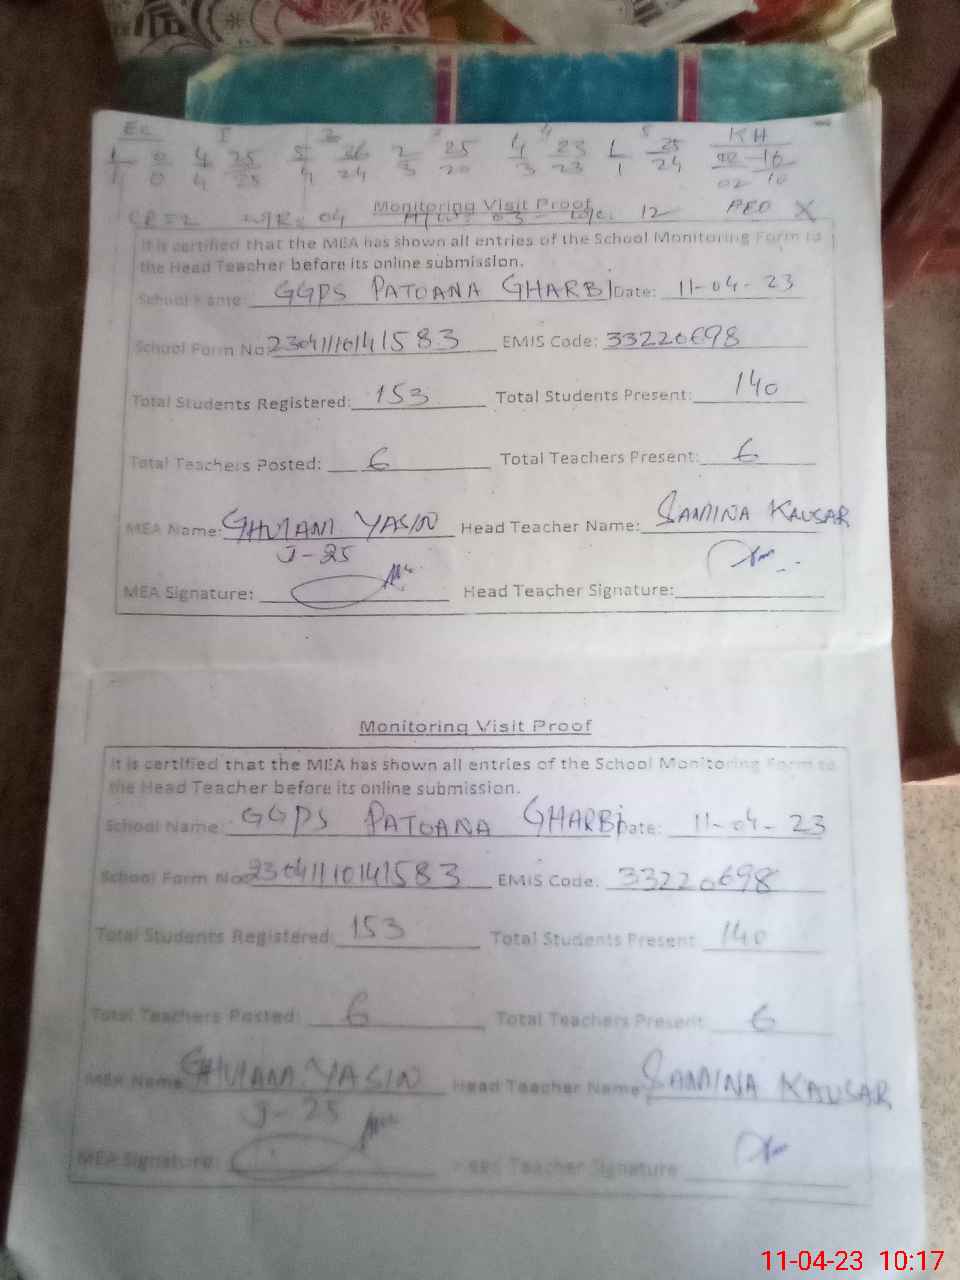 Ec I 2 3 4 5 KH
1/1 0/0 4/4 25/25 5/4 26/24 2/3 25/20 4/3 23/23 1/1 25/24 16/10
02
CR=2 04 03 12 X
Monitoring Visit Proof
It is certified that the MEA has shown all entries of the School Monitoring Form to
the Head Teacher before its online submission.
School Name: GGPS PATOANA GHARBI Date: 11-04-23
School Form No: 23041110141583 EMIS Code: 33220698
Total Students Registered: 153 Total Students Present: 140
Total Teachers Posted: 6 Total Teachers Present: 6
MEA Name: GHULAM YASIN Head Teacher Name: SAMINA KAUSAR
J-25
MEA Signature: Head Teacher Signature:
Monitoring Visit Proof
It is certified that the MEA has shown all entries of the School Monitoring Form to
the Head Teacher before its online submission.
School Name: GGPS PATOANA GHARBI Date: 11-04-23
School Form No: 23041110141583 EMIS Code: 33220698
Total Students Registered: 153 Total Students Present: 140
Total Teachers Posted: 6 Total Teachers Present: 6
MEA Name: GHULAM YASIN Head Teacher Name: SAMINA KAUSAR
J-25
MEA Signature: Head Teacher Signature:
11-04-23 10:17